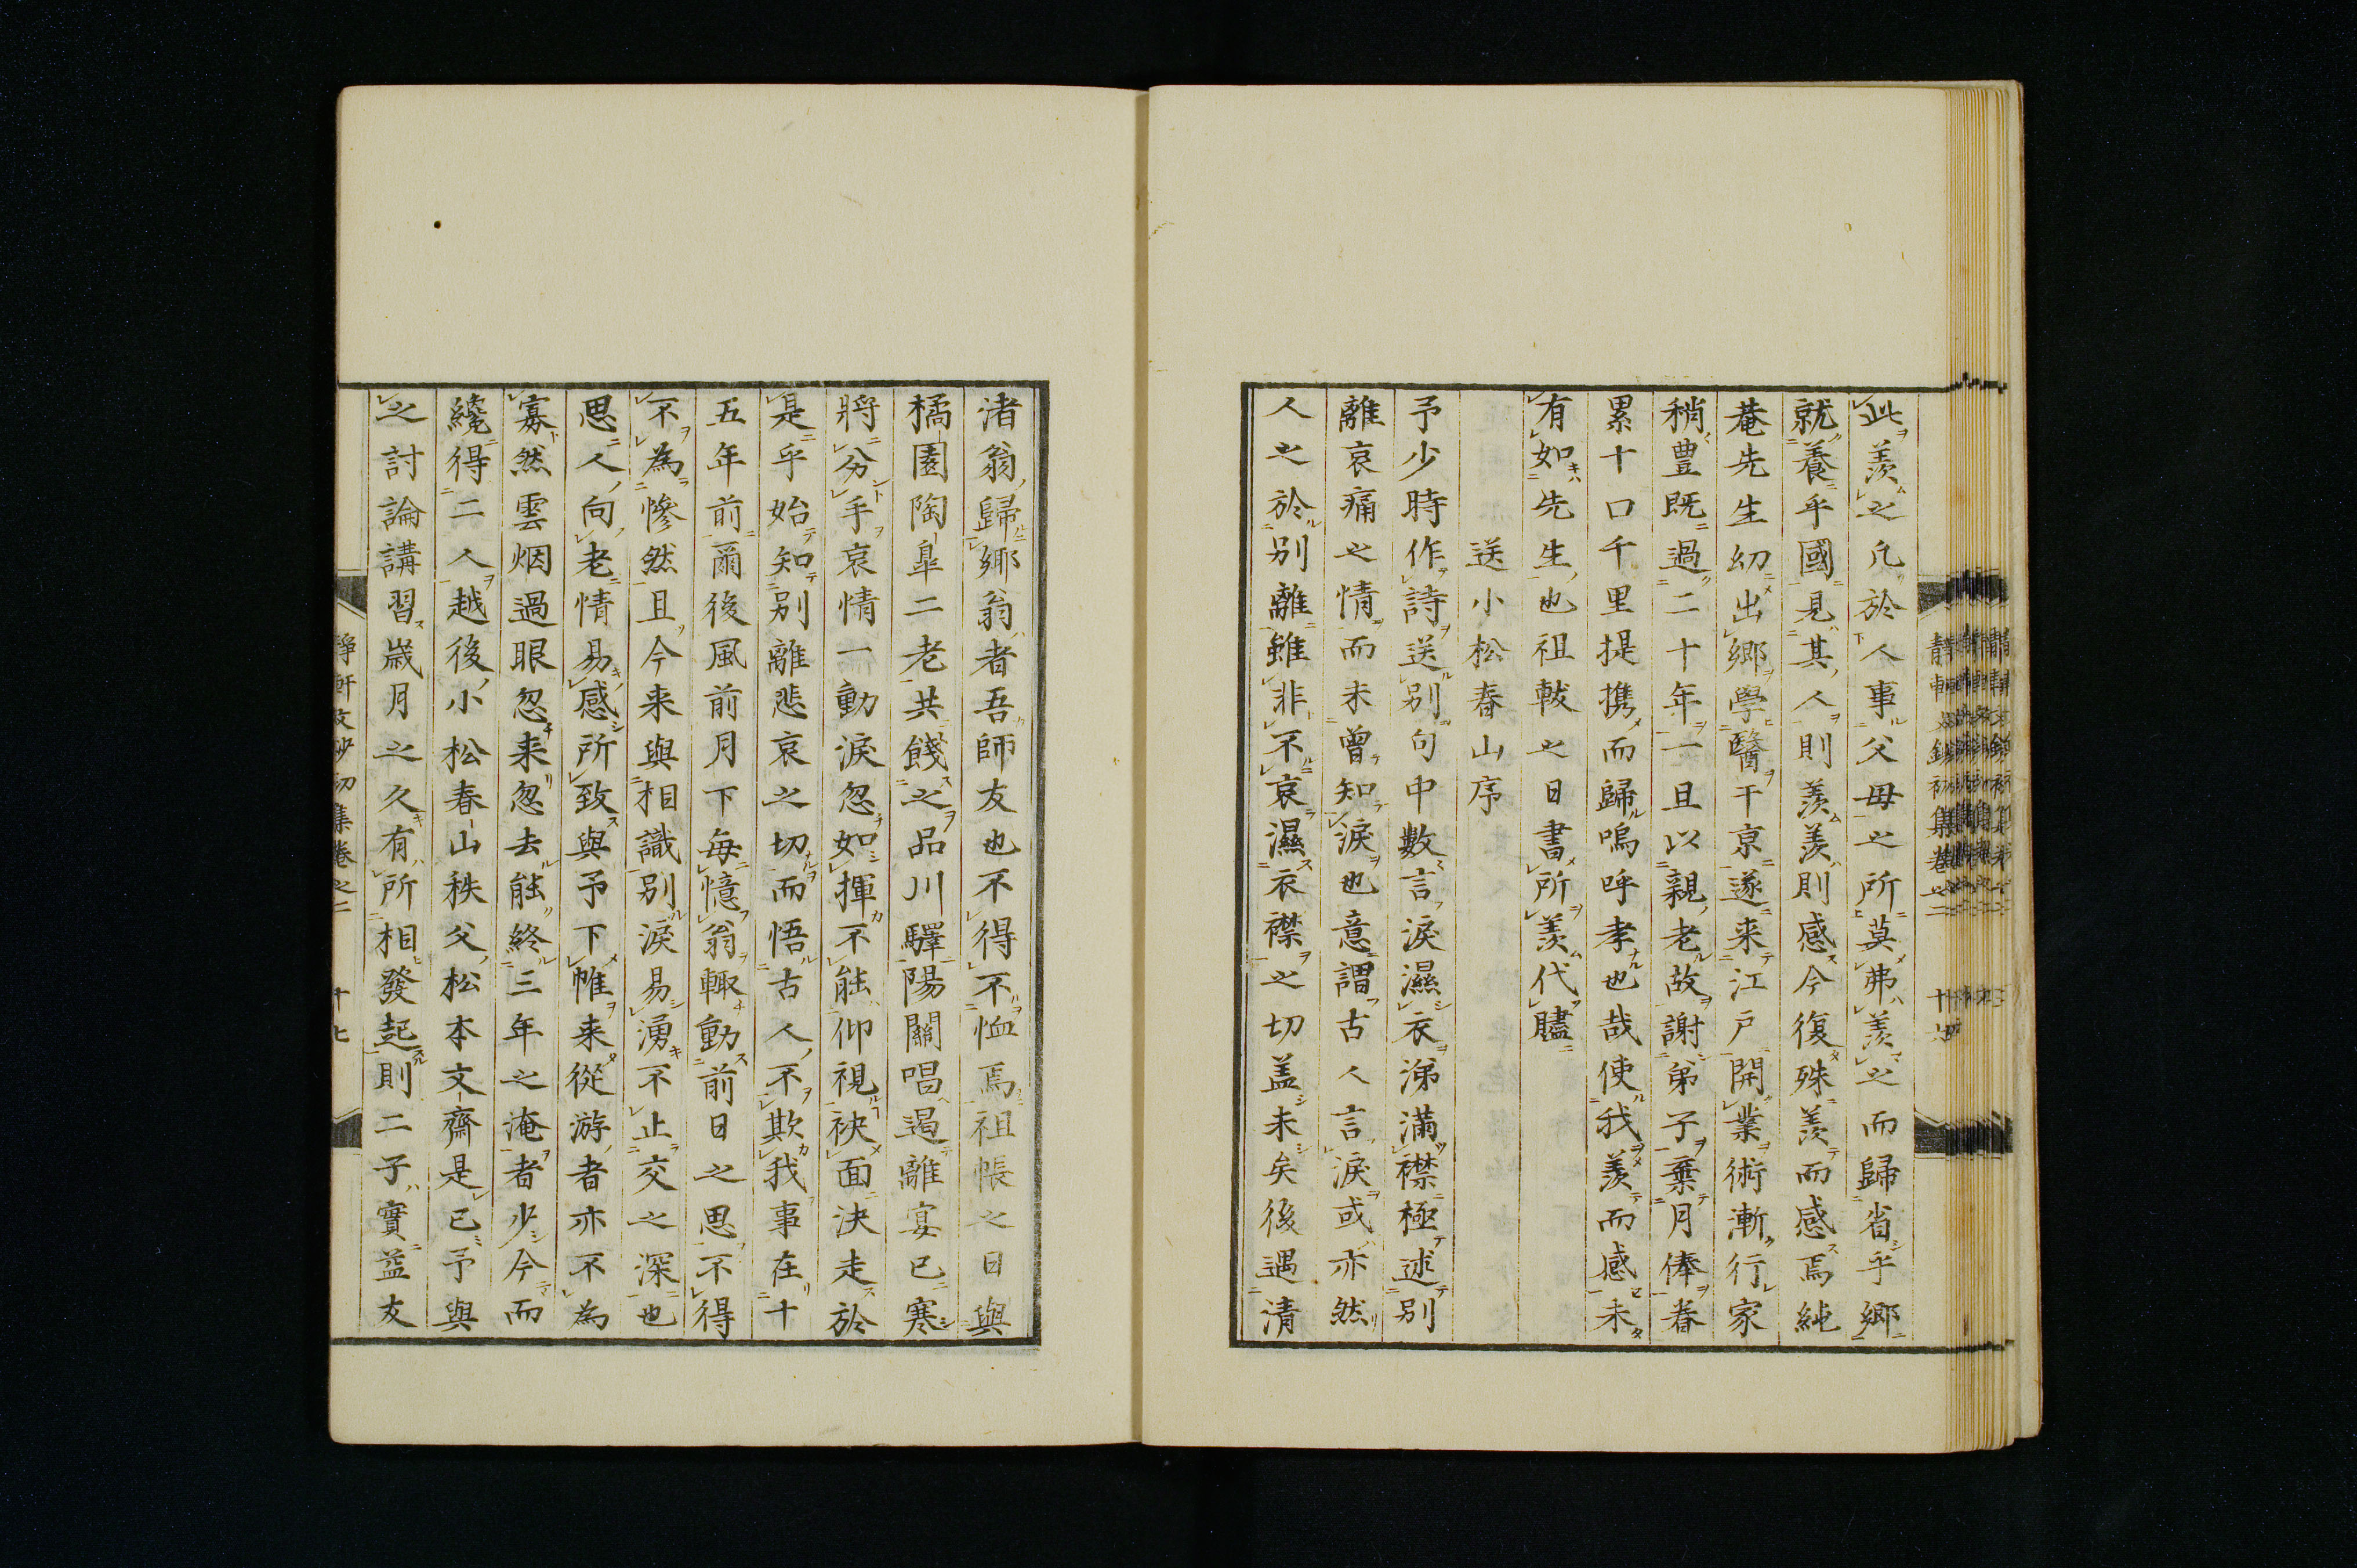 此羨之凡於人事父母之所莫弗羨之而歸省乎鄉
就養乎國見其人則羨羨則感今復殊羨而感焉純
菴先生幼出鄉學醫于京遂来江戸開業術漸行家
稍豊既過二十年一旦以親老故謝弟子棄月俸眷
累十口千里提携而歸嗚呼孝也哉使我羨而感未
有如先生也祖軷之日書所羨代贐
送小松春山序
予少時作詩送別句中數言淚濕衣涕満襟極述別
離哀痛之情而未曾知淚也意謂古人言淚或亦然
人之於別離雖非不哀濕衣襟之切盖未矣後遇清
渚翁歸鄉翁者吾師友也不得不恤焉祖帳之日與
橘園陶皐二老共餞之品川驛陽關唱遏離宴已寒
將分手哀情一動淚忽如揮不能仰視袂面決走於
是乎始知別離悲哀之切而悟古人不欺我事在十
五年前爾後風前月下每憶翁輙動前日之思不得
不為慘然且今来與相識別淚易湧不止交之深也
思人向老情易感所致與予下帷来從游者亦不為
寡然雲烟過眼忽来忽去能終三年之淹者少今而
纔得二人越後小松春山秩父松本文齋是已予與
之討論講習歳月之久有所相發起則二子實益友
靜軒文鈔初集卷之二 十七